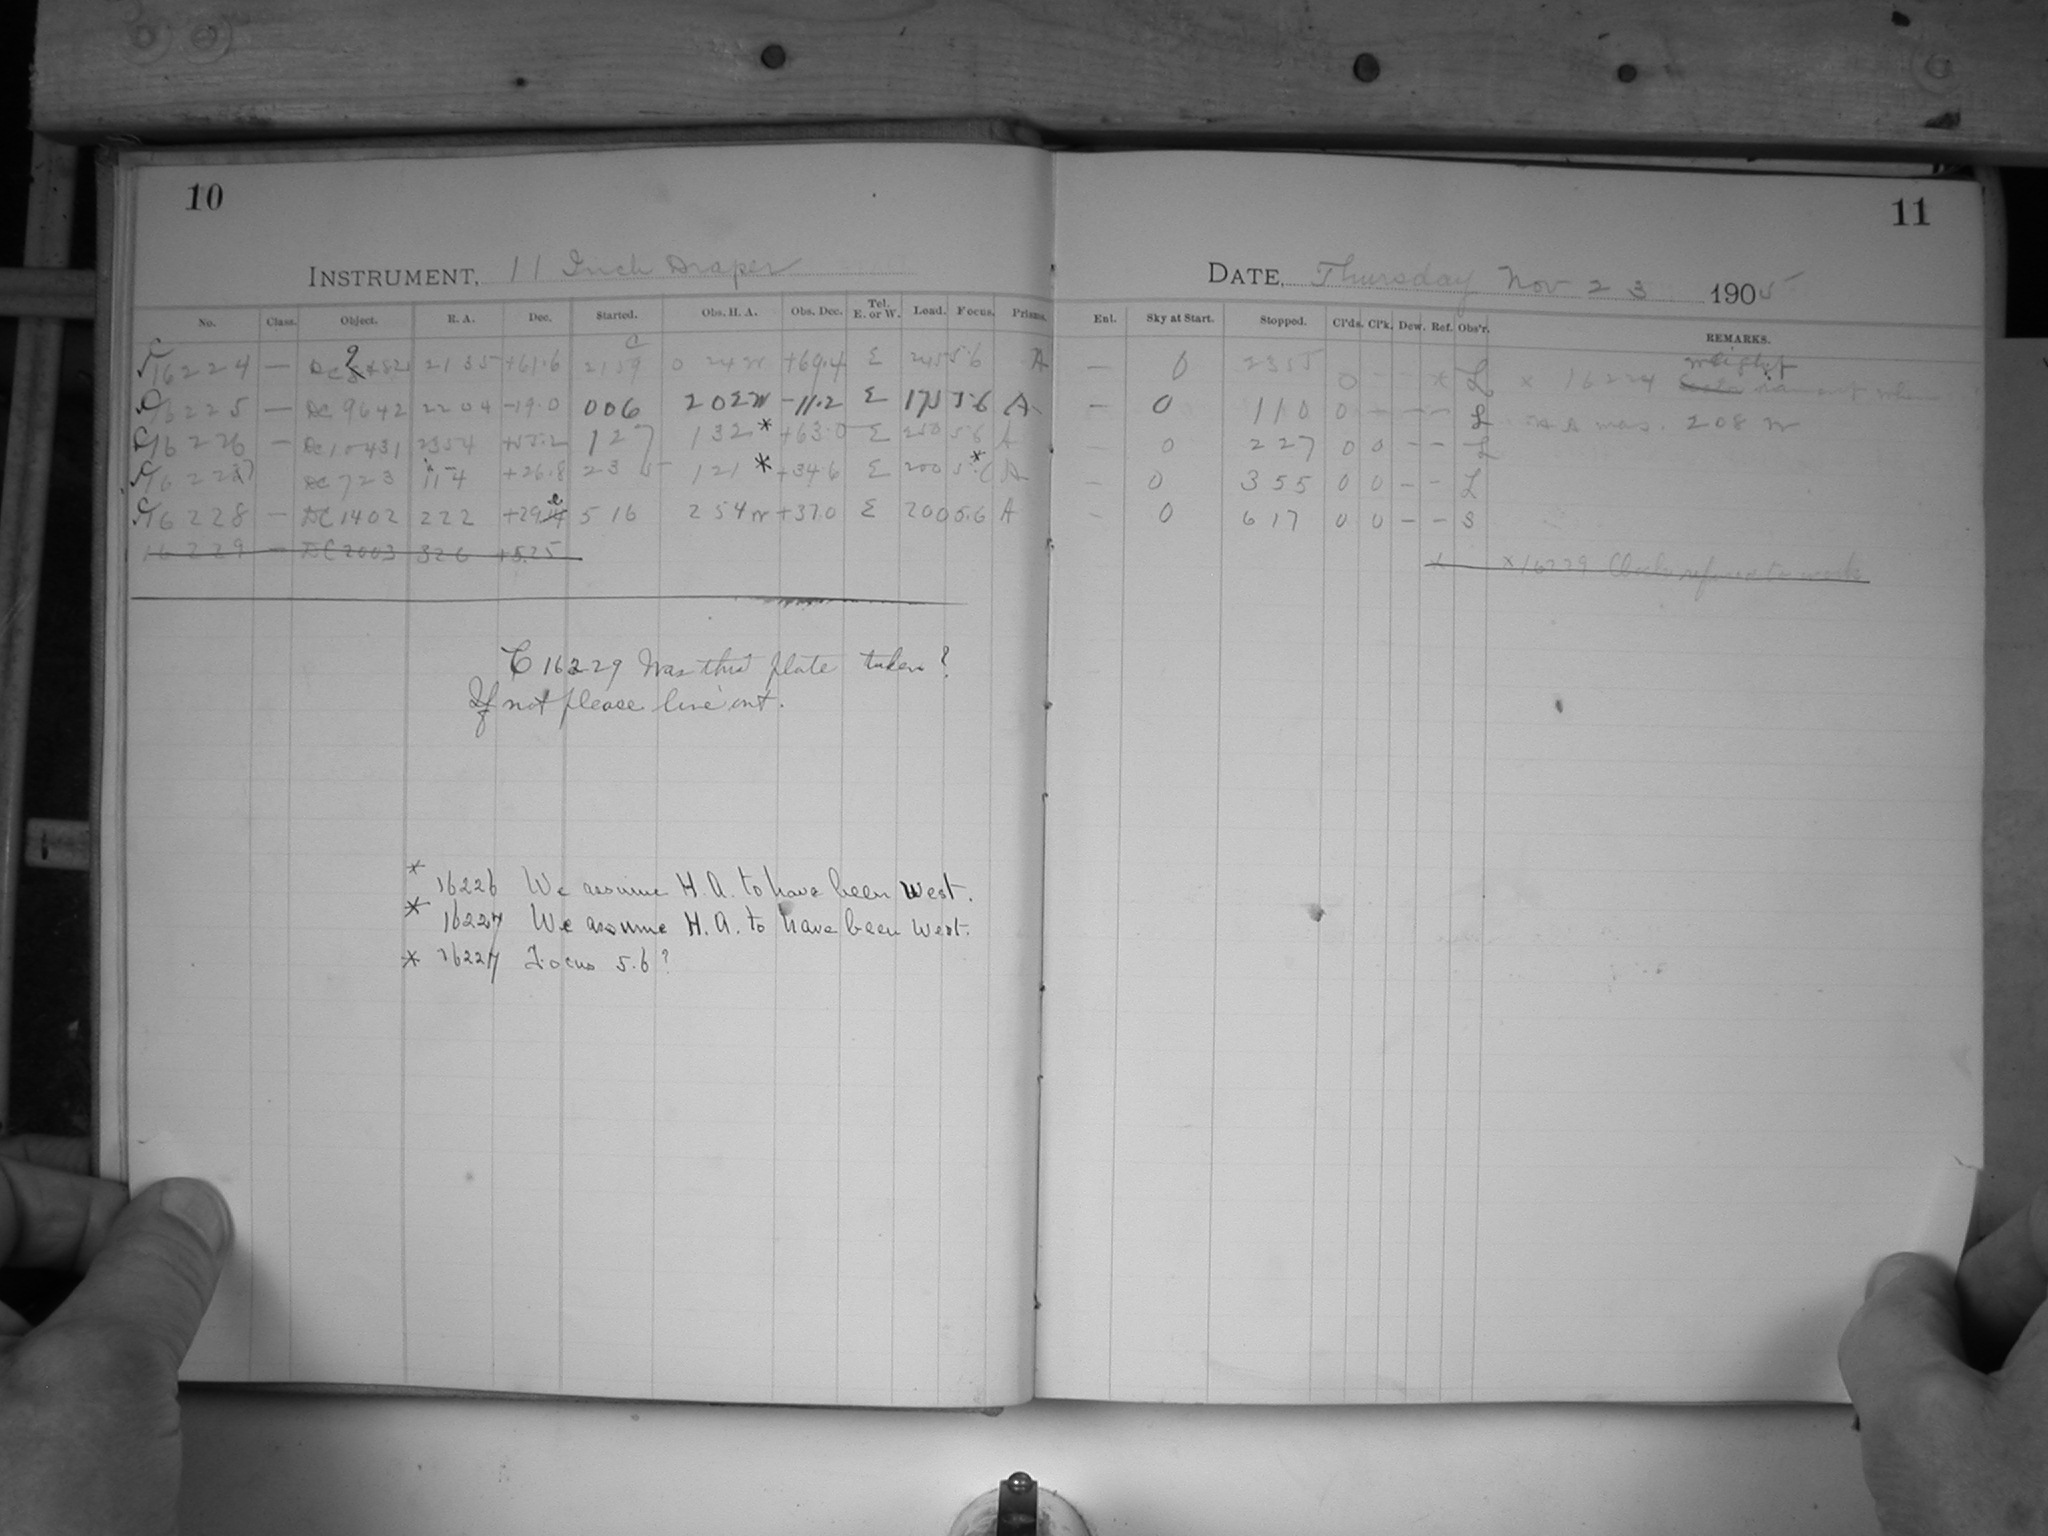 10
11
INSTRUMENT, 11 Inch Draper
DATE, Thursday Nov 23 1905
No. Class. Object. R. A. Dec. Started. Obs. H. A. Obs. Dec. Tel. E. or W. Load. Focus. Prisms. Enl. Sky at Start. Stopped. Cl'ds. Cl'k. Dew. Ref. Obs'r. REMARKS.
C 16224 — DC 21 35 +61.6 21 59 0 24 W +69.4 E 5.6 A — 0 23 55 0 - - * L × 16224 weight ran out when
C 16225 — DC 9642 22 04 -19.0 0 06 2 02 W -11.2 E 175 5.6 A — 0 1 10 0 — — — L H A was 2 08 W
C 16226 — DC 10431 23 54 +55.2 1 27 1 32 * +63.0 E 250 5.6 A — 0 2 27 0 0 — — L
C 16227 DC 723 1 14 +26.8 2 35 1 21 * +34.6 E 200 5. * A — 0 3 55 0 0 — — L
C 16228 — DC 1402 2 22 +29. 5 16 2 54 W +37.0 E 200 5.6 A — 0 6 17 0 0 — — S
16229 — DC 2003 3 26 +5.25 × ×16229 Clock refused to work
C 16229 Was this plate taken?
If not please line out.
* 16226 We assume H. A. to have been west.
* 16227 We assume H. A. to have been west.
* 16227 Focus 5.6?